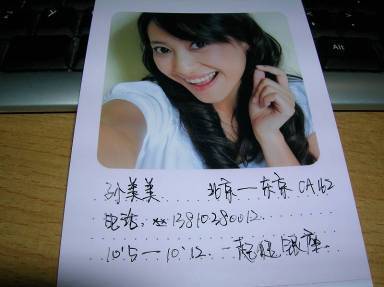 Alt
孙美美 北京—东京 CA162
电话: 13810280012
10.5—10.12. 一起